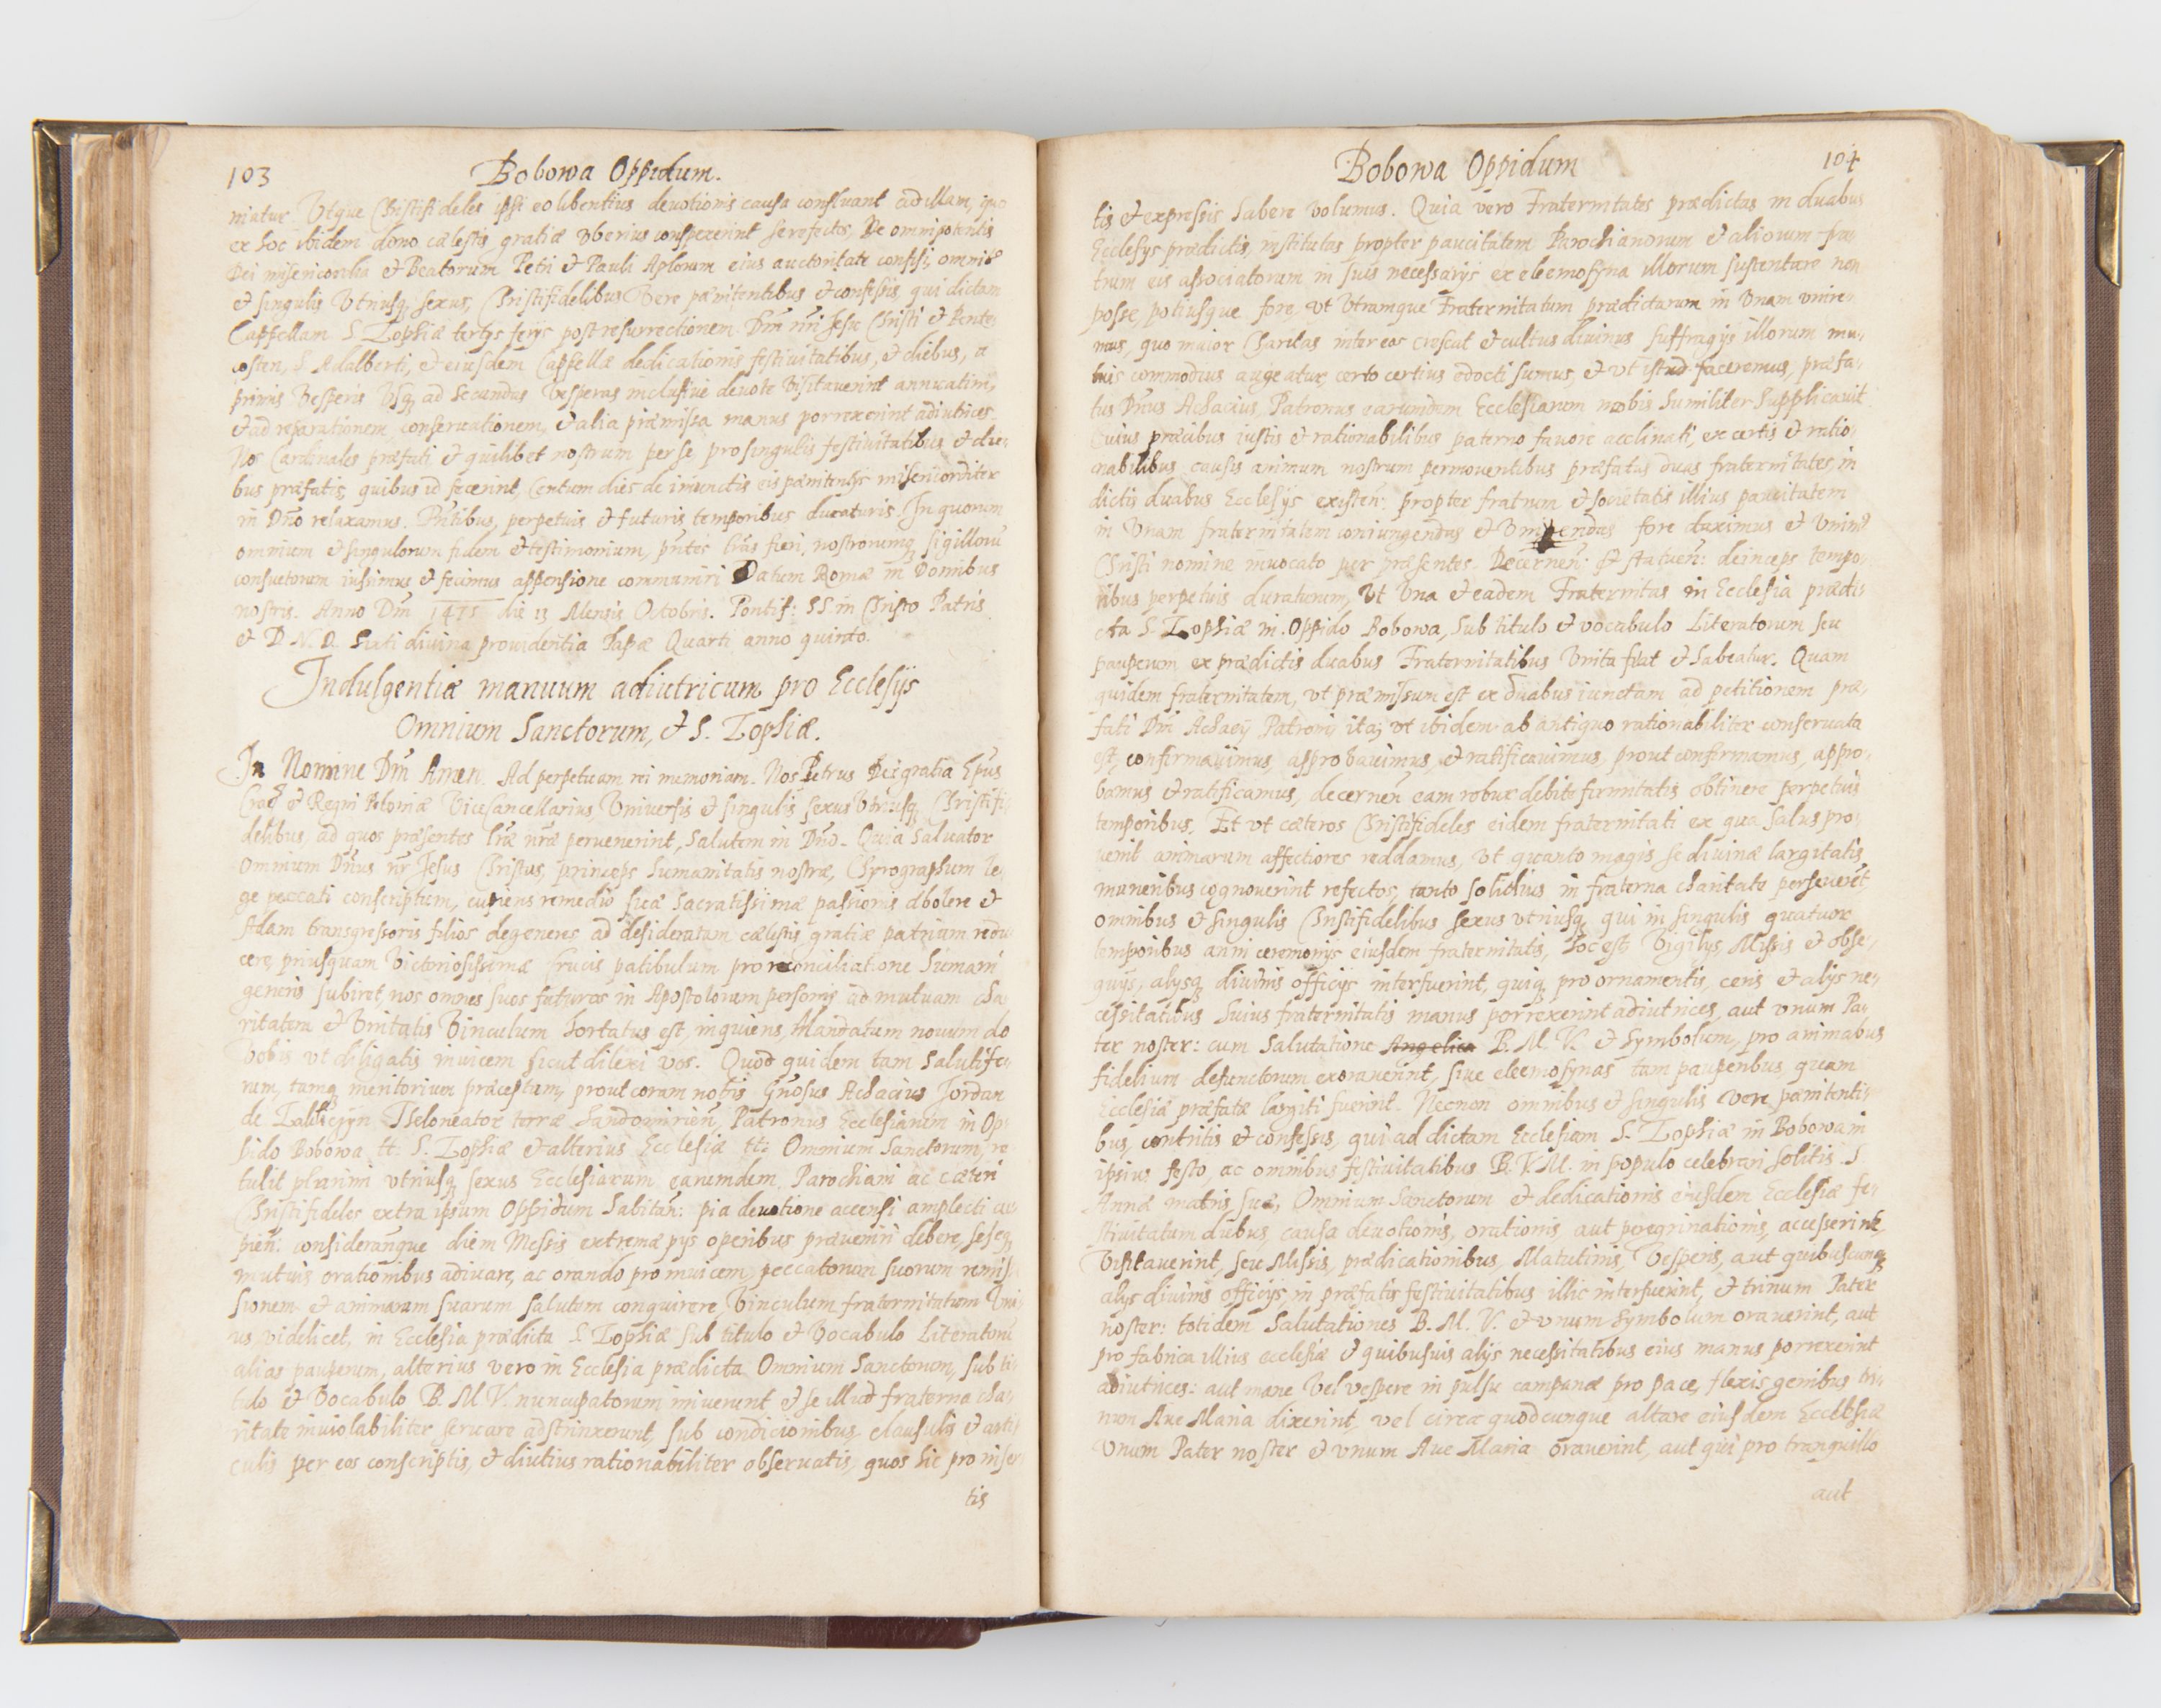 103
Bobowa Oppidum.
niatur Utque Christifideles ipsi eo libentius devotionis causa confluant ad illam, quo
ex hoc ibidem dono cælestis gratiæ uberius conspexerint se refectos, De omnipotentis
Dei misericordia et Beatorum Petri et Pauli Aplorum eius auctoritate confisi, omnibꝰ
et singulis Utriusq; sexus, Christifidelibus Vere pænitentibus et confessis qui dictam
Cappellam S. Zophiæ tertys ferys post resurrectionem Dni nri Jesu Christi et Pente
costen, S Adalberti, et eiusdem Cappellæ dedicationis festivitatibus, et diebus, a
primis Vesperis Usq; ad secundas Vesperas inclusive devote Visitaverint annuatim,
et ad reparationem conservationem, et alia præmissa manus porrexerint adiutrices
Nos Cardinales præfati et quilibet nostrum per se pro singulis festivitatibus et die-
bus præfatis quibus id fecerint, Centum dies de iniunctis eis pænitentys misericorditer
in Dno relaxamus. Pntibus, perpetuis et futuris temporibus duraturis. In quorum
omnium et singulorum fidem et testimonium, pntes lras fieri, nostrorumq; sigillorū
consuetorum iussimus et fecimus appensione communiri Datum Romæ in Domibus
nostris. Anno Dni 1475 die 13 Mensis Octobris. Pontif: SS. in Christo Patris
et D. N. D. Sixti divina providentia Papæ Quarti anno quinto.
Indulgentiæ manuum adiutricum pro Ecclesÿs
Omnium Sanctorum, et S. Zophiæ.
In Nomine Dni Amen. Ad perpetuam rei memoriam. Nos Petrus Dei gratia Epus
Crac et Regni Poloniæ Vicecancellarius, Universis et singulis sexus Utriusq; Christifi-
delibus, ad quos præsentes lræ nræ pervenerint, Salutem in Dno. Quia Salvator
Omnium Dnus nr Jesus Christus, princeps humanitatis nostræ, Chyrographum le-
ge peccati conscriptum, cupiens remedio suæ sacratissimæ passionis abolere et
Adam transgressoris filios degeneres ad desideratam cælestis gratiæ patriam redu
cere, priusquam Victoriosissimæ Crucis patibulum pro reconciliatione humani
generis subiret, nos omnes suos futuros in Apostolorum personis ad mutuam cha
ritatem et Unitatis Vinculum hortatus est, inquiens, Mandatum novum do
vobis ut diligatis invicem sicut dilexi vos. Quod quidem tam salutife-
rum, tamq; meritorium præceptum, prout coram nobis Gnosus Achacius Jordan
de Theloneator terræ Sandomirien, Patronus Ecclesiarum in Op
pido Bobowa tt: S. Zophiæ et alterius Ecclesiæ tt: Omnium Sanctorum re
tulit plurimi utriusq; sexus Ecclesiarum earumdem Parochiani ac cæteri
Christifideles extra ipsum Oppidum habitan: pia devotione accensi amplecti cu-
pien: considerantque diem Messis extremæ pys operibus prævenire debere, seseq;
mutuis orationibus adiuvare, ac orando pro invicem peccatorum suorum remis
sionem et animarum suarum salutem conquirere, Vinculum fraternitatum Uni
us videlicet, in Ecclesia prædicta S. Zophiæ sub titulo et Vocabulo Literatorū
alias pauperum, alterius vero in Ecclesia prædicta Omnium Sanctorum, sub ti-
tulo et Vocabulo B. M. V. nuncupatorum iniverunt et se illud fraterna cha-
ritate inviolabiliter servare adstrinxerunt, sub condicionibus clausulis et arti
culis per eos conscriptis, et diutius rationabiliter observatis, quos hic pro inser
tis
Bobowa Oppidum
104
tis et expressis habere volumus. Quia vero Fraternitates prædictas in duabus
Ecclesys prædictis, institutas propter paucitatem Parochianorum et aliorum fra
trum eis associatorum in suis necessarys ex eleemosyna illorum sustentare non
posse, potiusque fore, ut Utramque Fraternitatum prædictarum in Unam unire-
mus, quo maior Charitas inter eos crescat et cultus divinus suffragys illorum mu-
tuis commodius augeatur, certo certius edocti sumus, et ut istud faceremus, præfa-
tus Dnus Achacius, Patronus earundem Ecclesiarum nobis humiliter Supplicavit
Cuius præcibus iustis et rationabilibus paterno favore acclinati, ex certis et ratio-
nabilibus causis animum nostrum permoventibus præfatas duas fraternitates in
dictis duabus Ecclesÿs existen: propter fratrum et societatis illius paucitatem
in Unam fraternitatem coniungendas et Uniendas fore duximus et Unimꝰ
Christi nomine invocato per præsentes. Decernen: et statuen: deinceps tempo-
ribus perpetuis duraturum, Ut Una et eadem Fraternitas in Ecclesia prædi-
cta S. Zophiæ in Oppido Bobowa, sub titulo et vocabulo Literatorum seu
pauperum ex prædictis duabus Fraternitatibus Unita fiat et habeatur. Quam
quidem fraternitatem, ut præmissum est ex duabus iunctam ad petitionem præ-
fati Dni Achacÿ Patroni ita, ut ibidem ab antiquo rationabiliter conservata
est, confirmavimus approbavimus, et ratificavimus, prout confirmamus, appro-
bamus et ratificamus, decernen eam robur debite firmitatis obtinere perpetuis
temporibus. Et ut cæteros Christifideles eidem fraternitati ex qua Salus pro-
venit animarum affectiores reddamus, ut quanto magis se divinæ largitatis
muneribus cognoverint refectos, tanto solidius in fraterna charitate perseverēt,
omnibus et singulis Christifidelibus sexus utriusq; qui in singulis quatuor
temporibus anni ceremonys eiusdem fraternitatis, hoc est Vigilys, Missis et obse-
quys, alysq; divinis officys interfuerint, quiq; pro ornamentis, ceris et alys ne-
cessitatibus huius fraternitatis manus porrexerint adiutrices, aut unum Pa-
ter noster: cum Salutatione Angelica B. M. V. et Symbolum, pro animabus
fidelium defunctorum exoraverint, sive eleemosynas tam pauperibus quam
Ecclesiæ præfatæ largiti fuerint. Necnon omnibus et singulis vere pænitenti-
bus, contritis et confessis, qui ad dictam Ecclesiam S. Zophiæ in Bobowa in
ipsius festo, ac omnibus festivitatibus B. V. M. in populo celebrari solitis. S
Annæ matris suæ, Omnium Sanctorum et dedicationis eiusdem Ecclesiæ fe-
stivitatum diebus causa devotionis, orationis aut peregrinationis, accesserint,
Visitaverint, seu Missis, prædicationibus, Matutinis, Vesperis, aut quibuscunq;
alys divinis officys in præfatis festivitatibus illic interfuerint, et trinum Pater
noster: totidem Salutationes B. M. V. et unum Symbolum oraverint, aut
pro fabrica illius ecclesiæ et quibusvis alÿs necessitatibus eius manus porrexerint
adiutrices: aut mane Vel vespere in pulsu campanæ pro pace, flexis genibus tri-
num Ave Maria dixerint, vel circa quodcunque altare eiusdem Ecclesiæ
Unum Pater noster et unum Ave Maria oraverint, aut qui pro tranquillo
aut